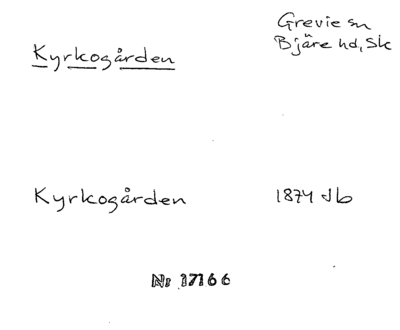 Kyrkogården
Grevie sn
Bjäre hd, Sk
Kyrkogården
1874 Jb
Nr 17166